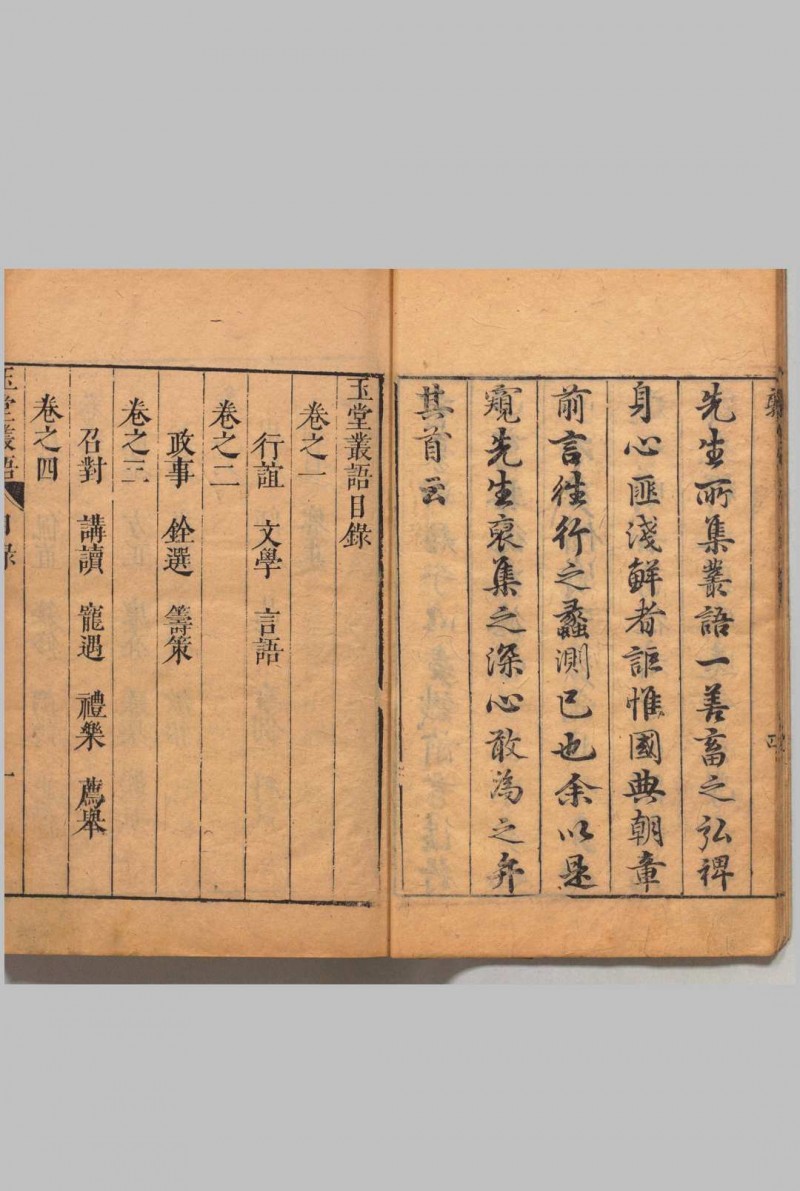 先生所集叢語一善畜之弘裨
身心匪淺鮮者詎惟國典朝章
前言徃行之蠡測已也余以是
窺先生裒集之深心敢為之弁
其首云
玉堂叢語目錄
卷之一
行誼 文學 言語
卷之二
政事 銓選 籌策
卷之三
召對 講讀 寵遇 禮樂 薦舉
卷之四
玉堂叢語 目錄 一